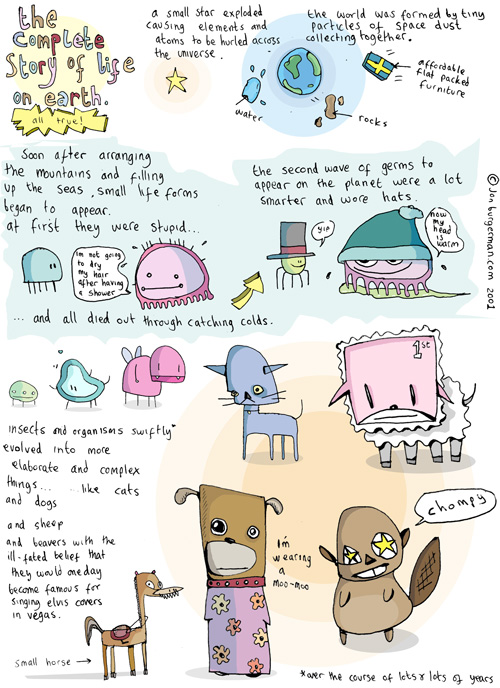 the
complete
Story of life
on earth.
all true!
a small star exploded
causing elements and
atoms to be hurled across
the universe.
the world was formed by tiny
particles of space dust
collecting together.
affordable
flat packed
furniture
water
rocks
Soon after arranging
the mountains and filling
up the seas, small life forms
began to appear.
at first they were stupid...
im not going
to dry
my hair
after having
a shower
... and all died out through catching colds.
the second wave of germs to
appear on the planet were a lot
smarter and wore hats.
yip
now
my
head
is
warm
©Jon burgerman.com 2001
insects and organisms swiftly*
evolved into more
elaborate and complex
things... ...like cats
and dogs
1st
and sheep
and beavers with the
ill-fated belief that
they would one day
become famous for
singing elvis covers
in vegas.
small horse →
i'm
wearing
a
moo-moo
chompy
*over the course of lots & lots of years